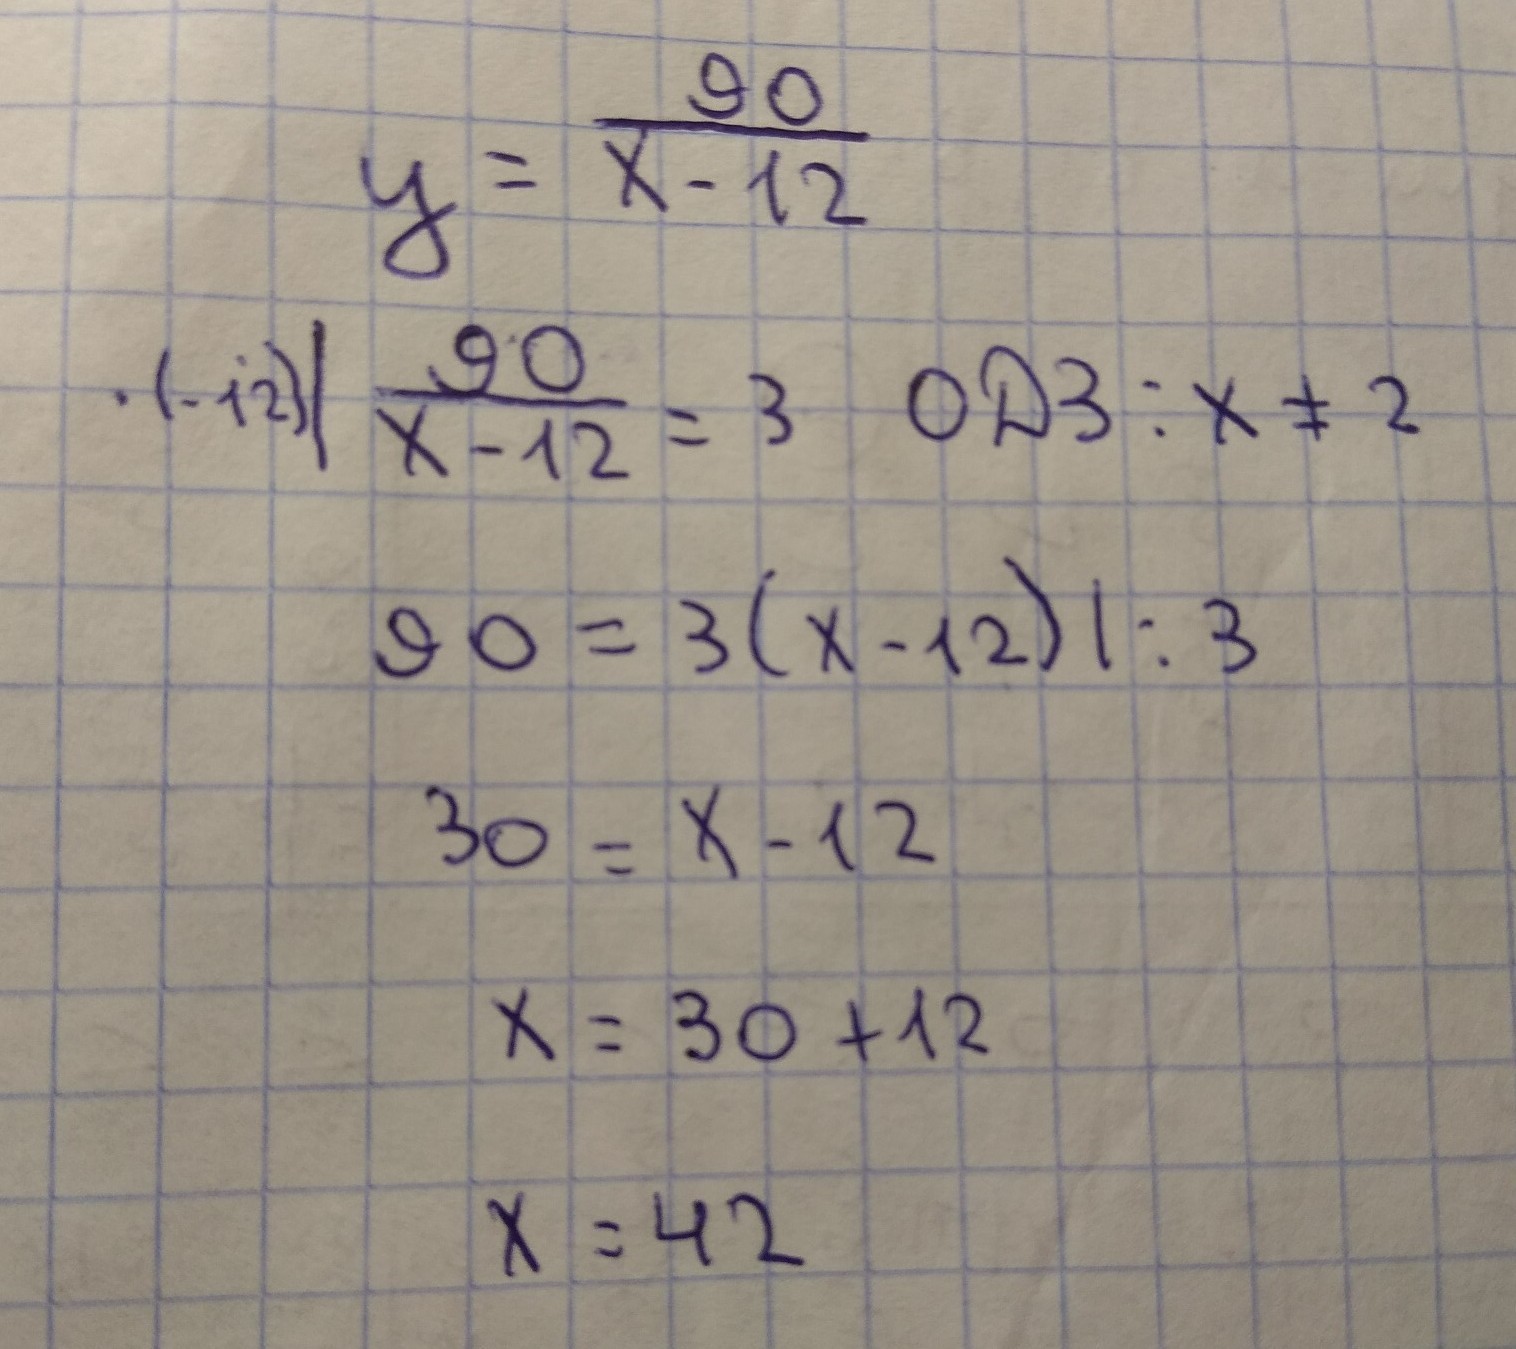 y = 90/(x - 12)
·(-12)| 90/(x - 12) = 3 ОДЗ: x ≠ 2
90 = 3(x - 12) | : 3
30 = x - 12
x = 30 + 12
x = 42